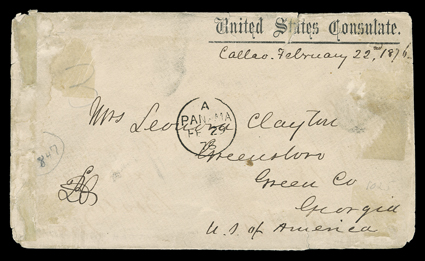 United States Consulate.
Callao. February 22nd, 1876.
A
PANAMA
FE 29
Mrs Clayton
Greensboro
Green Co
Georgia
U.S. of America